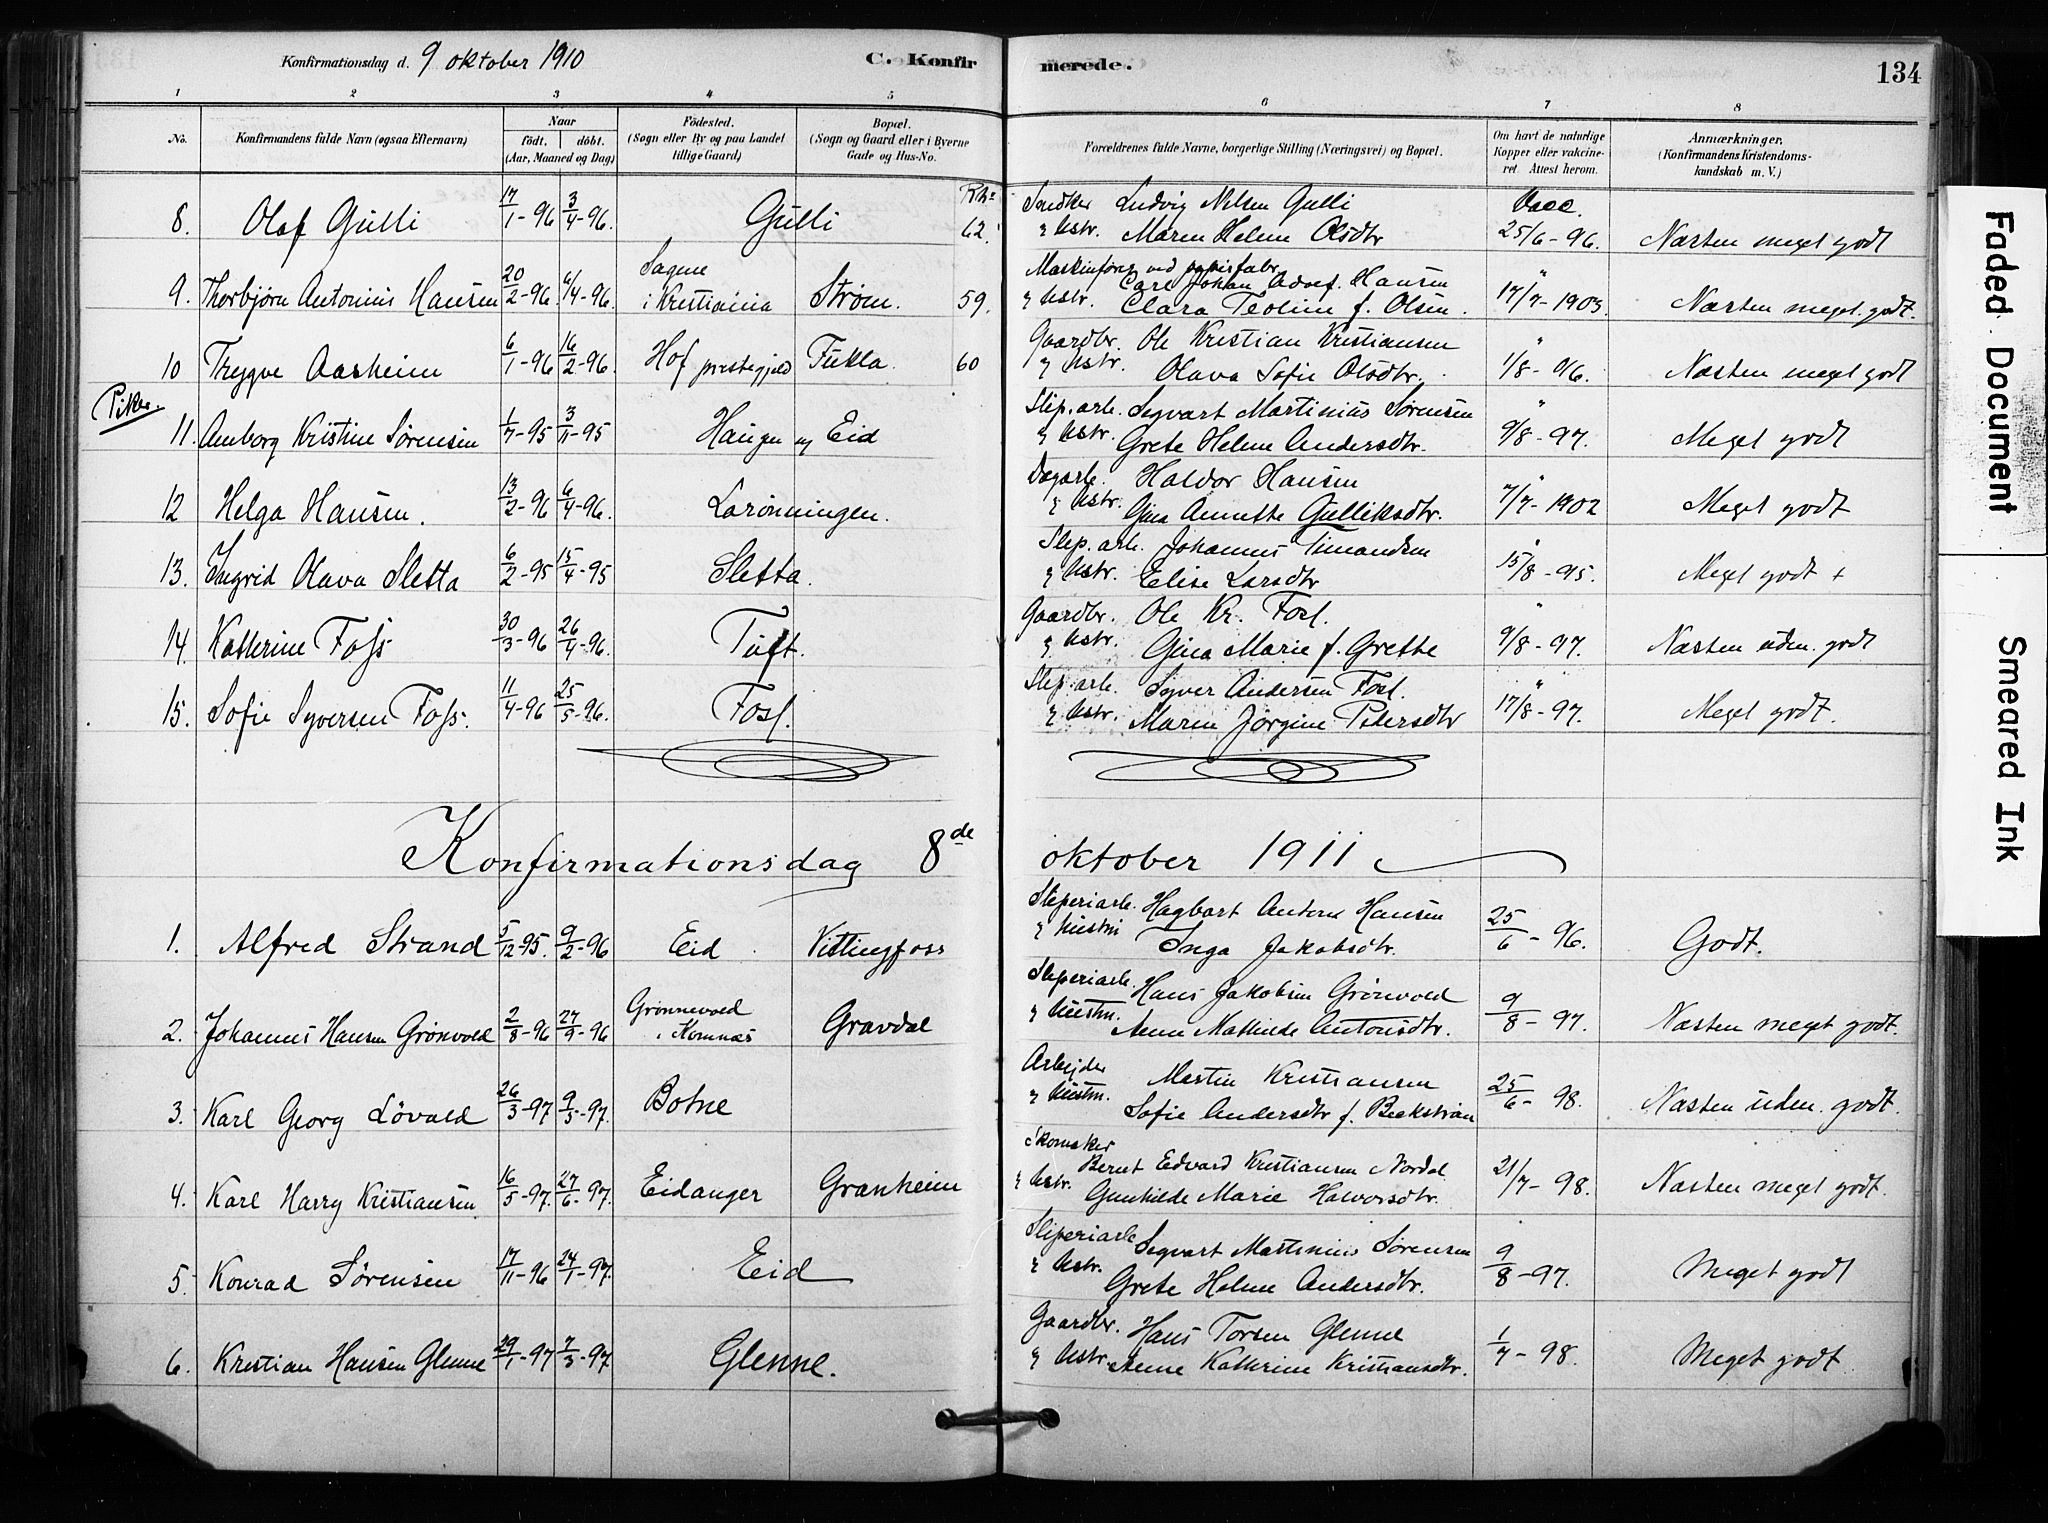 Konfirmationsdag d. 9 oktober 1910
C. Konfirmerede.
134
1 2 3 4 5 6 7 8
No.
Konfirmandens fulde Navn (ogsaa Efternavn)
Naar
födt. döbt.
(Aar, Maaned og Dag)
Födested.
(Sogn eller By og paa Landet
tillige Gaard)
Bopæl.
(Sogn og Gaard eller i Byerne
Gade og Hus-No.
Forældrenes fulde Navne, borgerlige Stilling (Næringsvei) og Bopæl.
Om havt de naturlige
Kopper eller vakcine-
ret. Attest herom.
Anmærkninger,
(Konfirmandens Kristendoms-
kundskab m. V.)
8. Olaf Gulli 17/1-96 3/4-96. Gulli 62. Snedker Ludvig Nilsen Gulli Vacc.
& Hstr. Maren Helene Olsdtr 25/6-96. Næsten meget godt
9. Thorbjørn Antonius Hansen 20/2-96. 6/4-96. Sagene
i Kristiania Strøm. 59. Maskinfører ved papirfabr.
Carl Johan Adolf. Hansen "
& Hstr. Clara Teoline f. Olsen. 17/7-1903. Næsten meget godt.
10 Trygve Aasheim 6/1-96 16/2-96. Hof præstegjeld Fukla. 60 Gaardbr. Ole Kristian Kristiansen "
& Hstr. Olava Sofie Olsdtr. 1/8-96. Næsten meget godt
Piker.
11. Amborg Kristine Sørensen 1/7-95 3/11-95 Haugen og Eid Slip.arb. Segvart Martinius Sørensen "
& Hstr. Grete Helene Andersdtr. 9/8-97. Meget godt
12 Helga Hansen. 13/2-96 6/4-96. Larønningen. Dagarb. Haldor Hansen "
& Hstr. Gina Annette Gulliksdtr. 7/7-1902 Meget godt
13. Ingrid Olava Sletta 6/2-95 15/4-95 Sletta. Slip.arb. Johannes Timandsen "
& Hstr. Elise Larsdtr 15/8-95. Meget godt +
14. Kathrine Foss 30/3-96 26/4-96. Tuft. Gaardbr. Ole Kr. Foss. "
& Hstr. Gina Marie f. Grette 9/8-97. Næsten uden. godt
15. Sofie Syversen Foss. 11/4-96 25/5-96. Foss. Slip.arb. Syver Andersen Foss. "
& Hstr. Maren Jørgine Petersdtr 17/8-97. Meget godt.
Konfirmationsdag 8de oktober 1911
1. Alfred Strand 5/12-95. 9/2-96 Eid Vittingfoss Sliperiarb. Hagbart Anders Hansen
& Hustru Inga Jakobsdtr. 25/6-96. Godt.
2. Johannes Hansen Grønvold 2/8-96 27/9-96 Grønnevold
i Komnes Gravdal Sliperiarb. Hans Jakobsen Grønvold
& Hustru. Anne Mathilde Antonsdtr. 9/8-97. Næsten meget godt.
3. Karl Georg Løvald 26/3-97 9/5-97. Botne Arbejder Martin Kristiansen
& Hustru. Sofie Andersdtr f. Beckstrøm 25/6-98. Næsten uden. godt.
4. Karl Harry Kristiansen 16/5-97. 27/6-97. Eidanger Granheim Skomaker
Bernt Edvard Kristiansen Nordal
& Hstr. Gunhilde Marie Halvorsdtr. 21/7-98. Næsten meget godt.
5. Konrad Sørensen 17/11-96 24/1-97. Eid Sliperiarb Segvart Martinius Sørensen
& Hstr. Grete Helene Andersdtr. 9/8-97. Meget godt
6. Kristian Hansen Glenne 29/1-97 7/3-97. Glenne. Gaardbr. Hans Torsen Glenne
& Hstr. Anne Kathrine Kristiansdtr. 1/7-98. Meget godt.
Faded Document
Smeared Ink